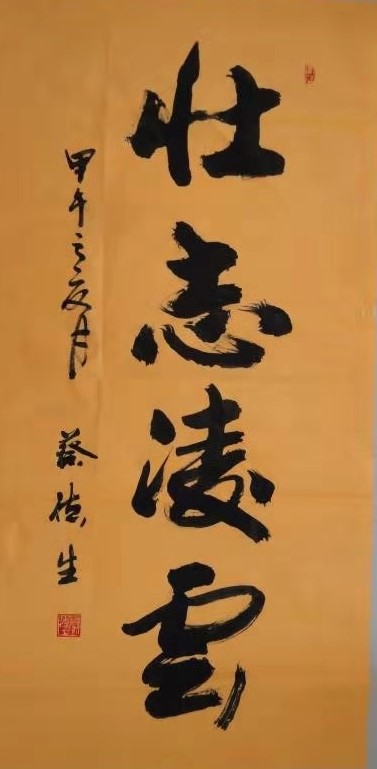 壮志凌云
甲午之夏月
蔡德生